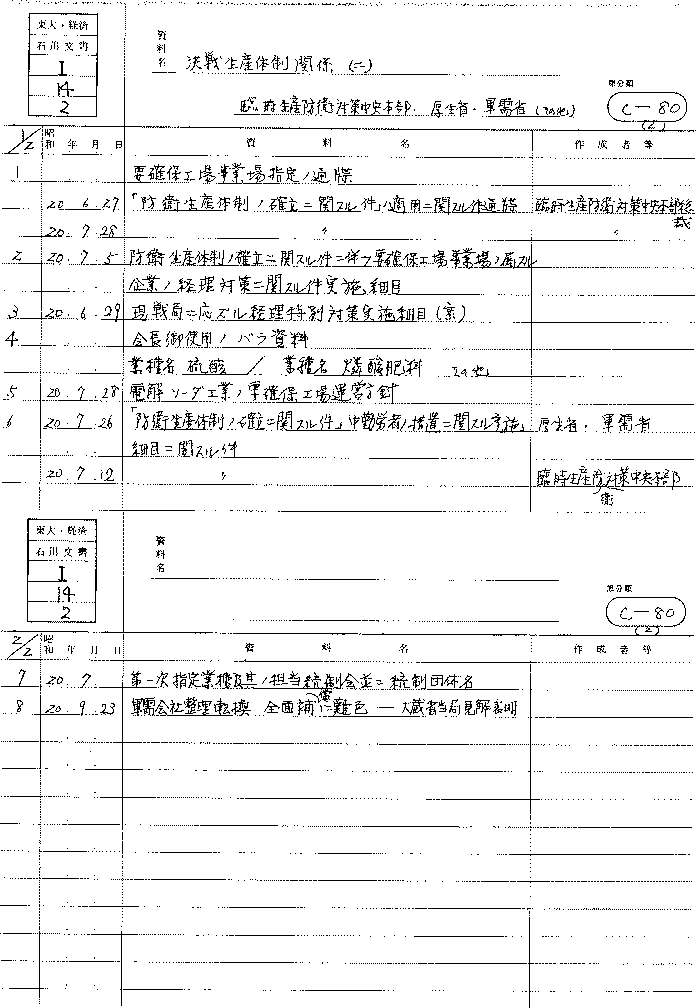 東大・経済
石川文書
I
14
2
資料名
決戦生産体制関係 (二)
臨時生産防衛対策中央本部. 厚生省・軍需省 (その他)
原分類
C-80
(2)
1/2 昭和 年 月 日 資料名 作成者等
1 要確保工場事業場指定ノ通牒
20 6 27 「防衛生産体制ノ確立ニ関スル件」ノ適用ニ関スル件通牒 臨時生産防衛対策中央本部総裁
20 7 28 〃 〃
2 20 7 5 防衛生産体制ノ確立ニ関スル件ニ伴フ要確保工場事業場ノ属スル
企業ノ経理対策ニ関スル件実施細目
3 20 6 29 現戦局ニ応ズル経理特別対策実施細目(案)
4 会長御使用ノバラ資料
業種名 硫酸 / 業種名 燐酸肥料 その他
5 20 7 28 電解ソーダ工業ノ要確保工場運営方針
6 20 7 26 「防衛生産体制ノ確立ニ関スル件」中勤労者ノ措置ニ関スル実施 厚生省・軍需省
細目ニ関スル件
20 7 12 〃 臨時生産防衛対策中央本部
東大・経済
石川文書
I
14
2
資料名
原分類
C-80
(2)
2/2 昭和 年 月 日 資料名 作成者等
7 20 7 第一次指定業種及其ノ担当統制会並ニ統制団体名
8 20 9 23 軍需会社整理転換 全面補償に難色 — 大蔵省当局見解表明